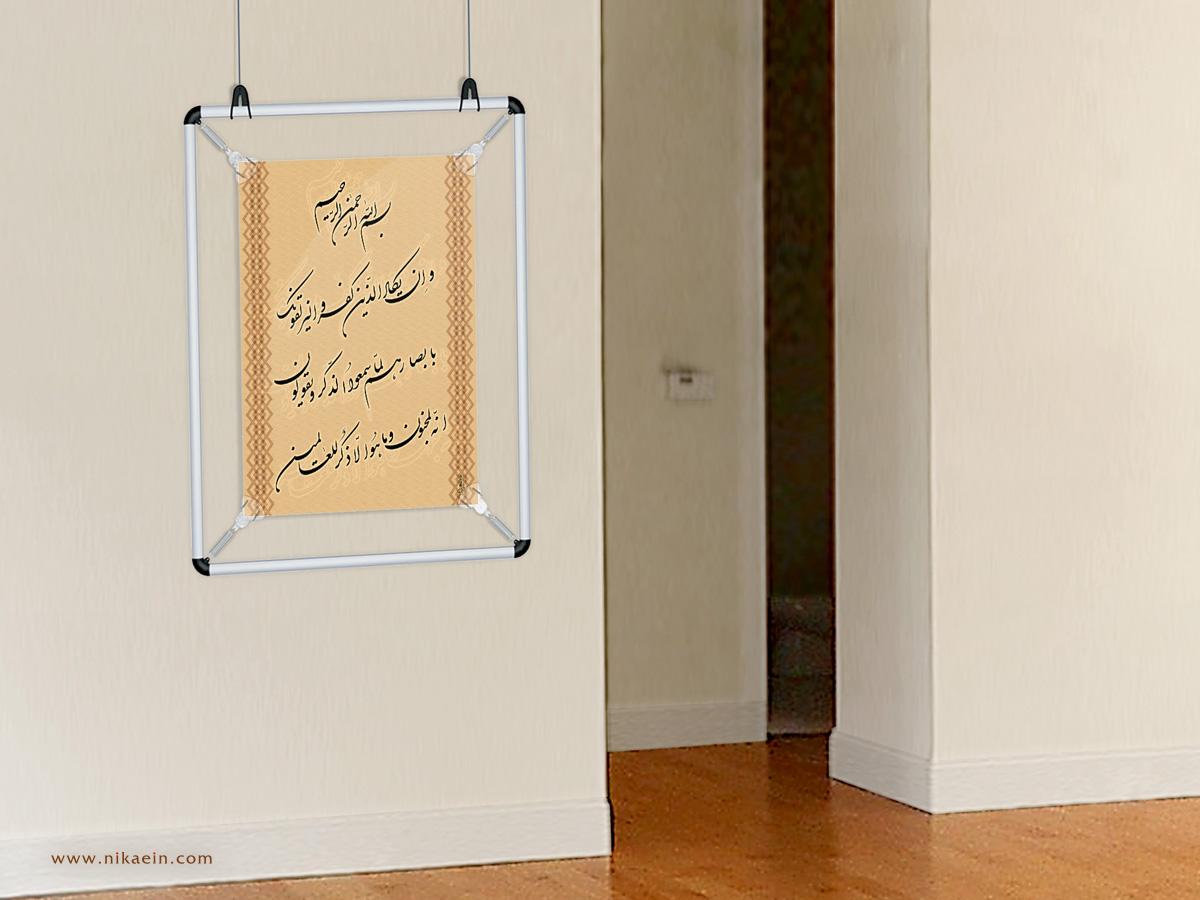 بسم الله الرحمن الرحیم
و ان یکاد الذین کفروا لیزلقونک
بابصارهم لمّا سمعوا الذّکر و یقولون
انّه لمجنون و ما هو الّا ذکر للعالمین
www.nikaein.com